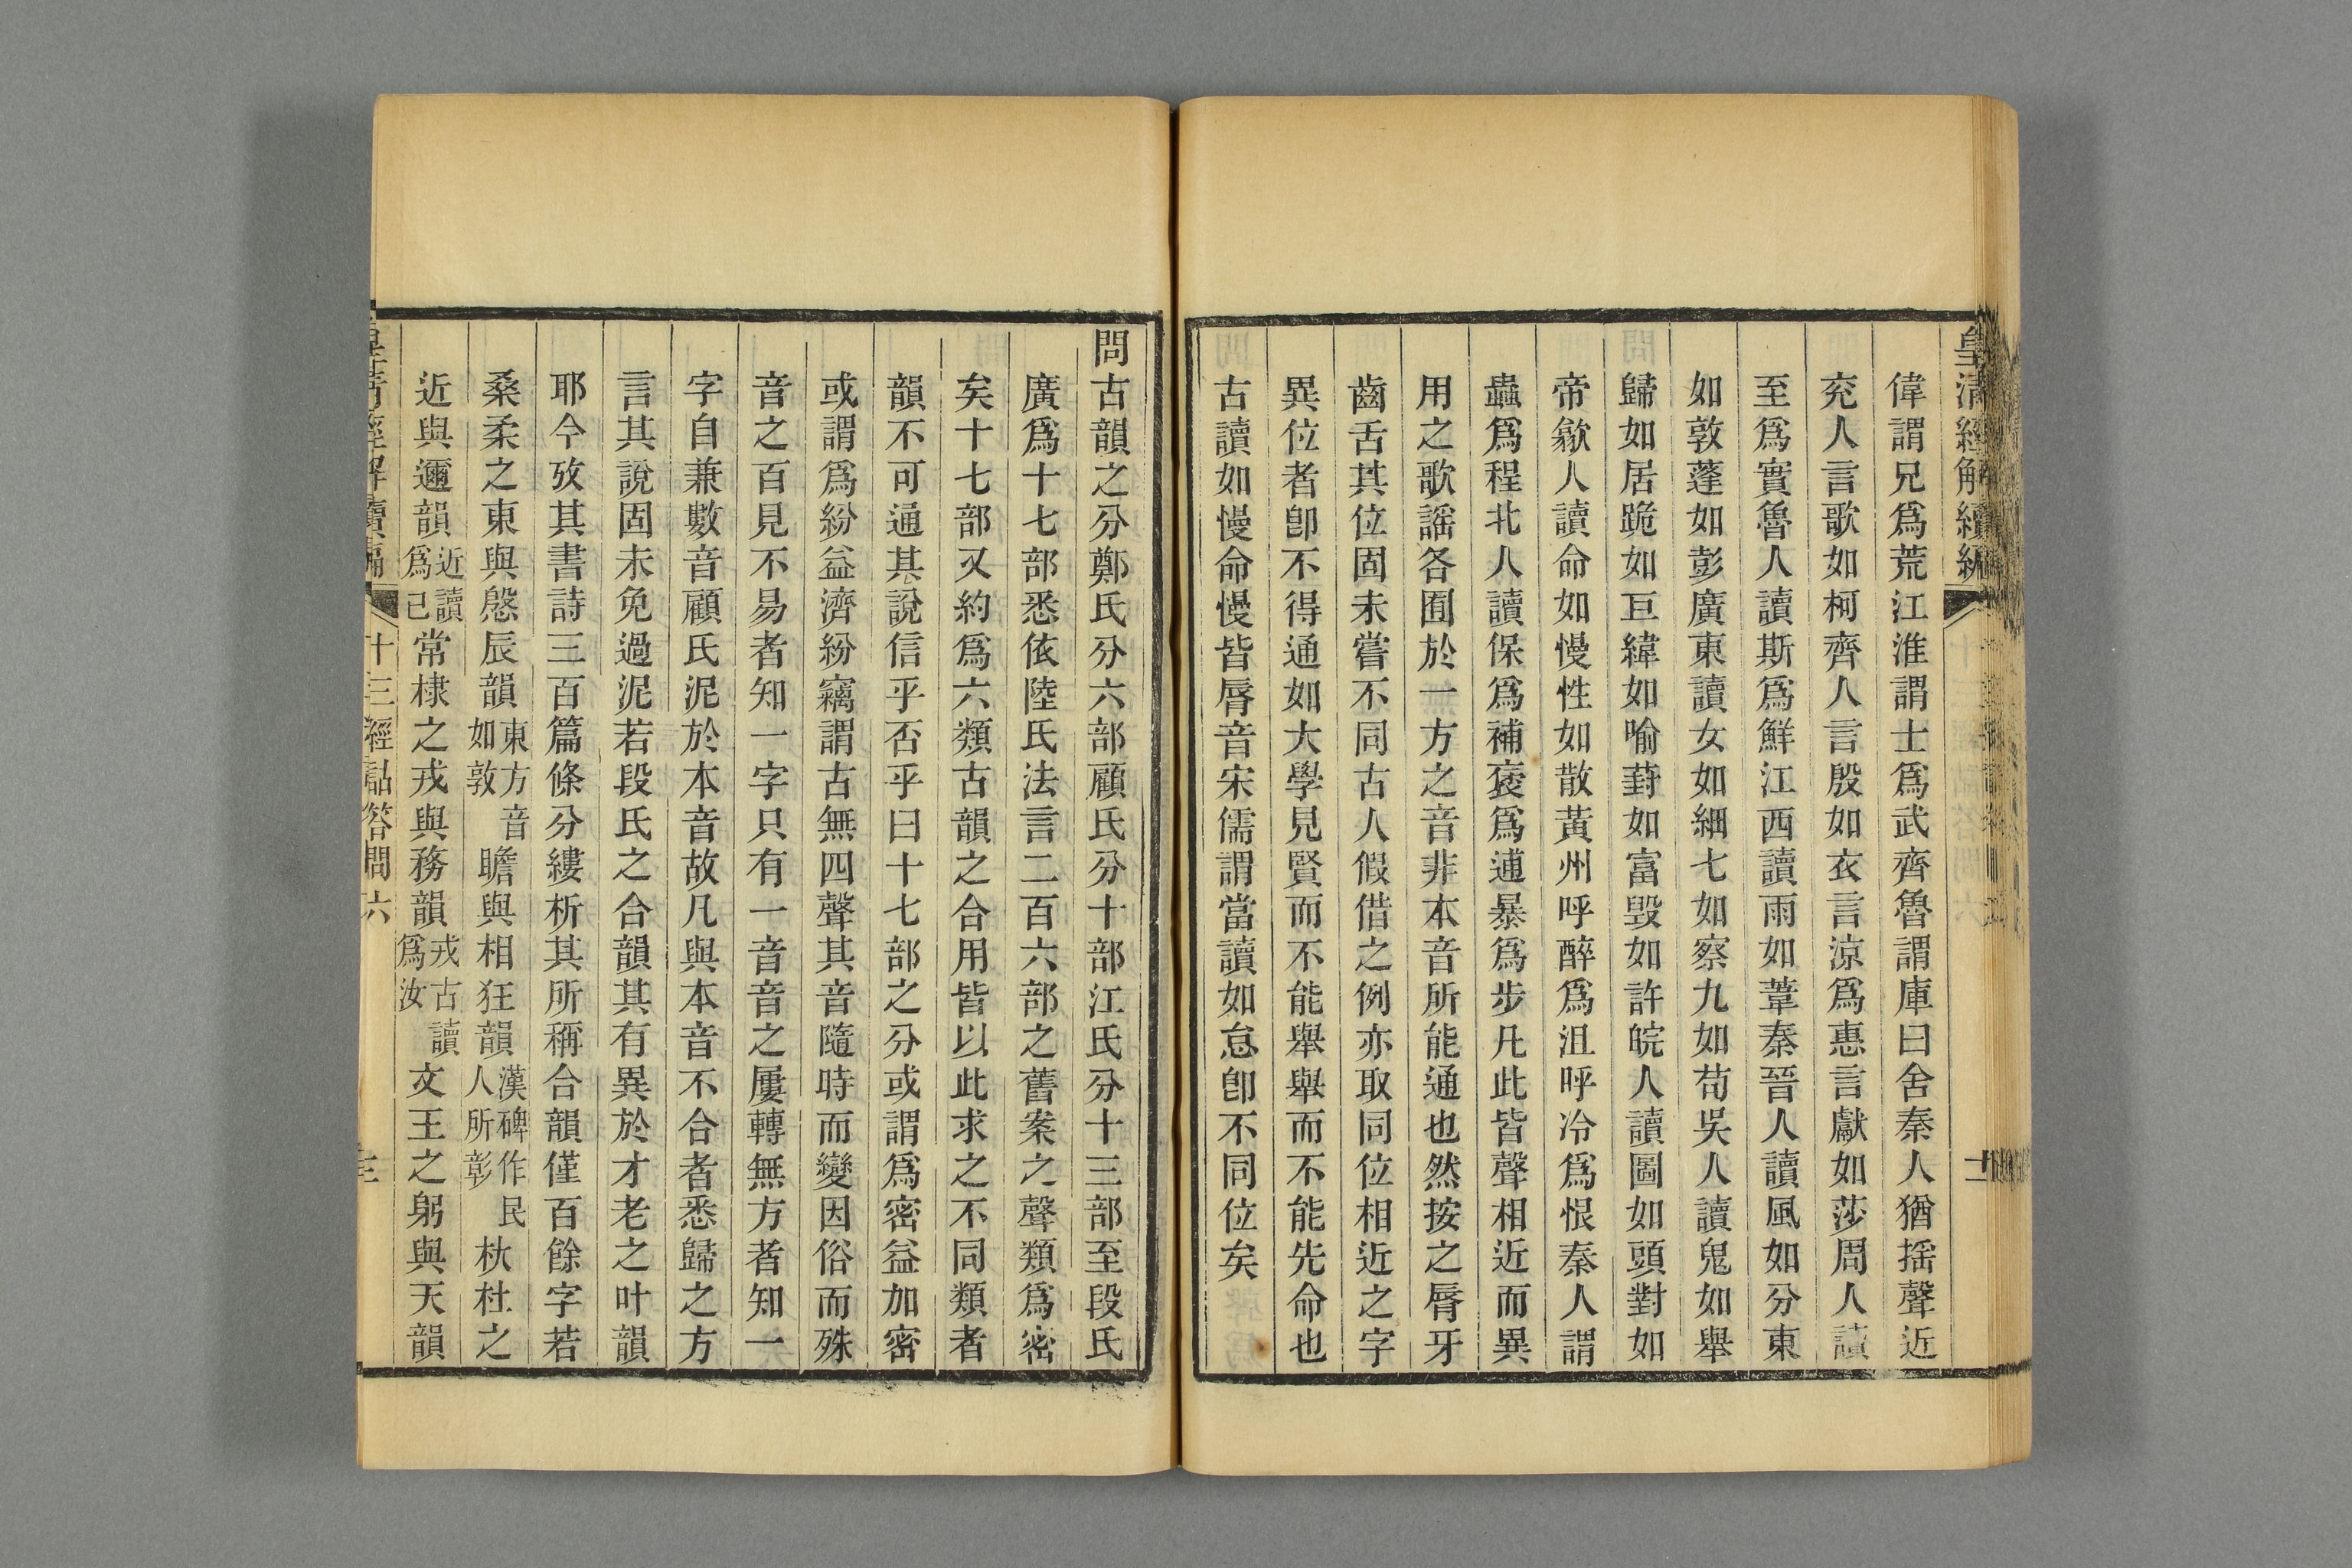 皇清經解續編
偉謂兄爲荒江淮謂士爲武齊魯謂庫曰舍秦人猶搖聲近
兖人言歌如柯齊人言殷如衣言凉爲惠言獻如莎周人讀
至爲實魯人讀斯爲鮮江西讀雨如葦秦晉人讀風如分東
如敦蓬如彭廣東讀女如細七如察九如苟吳人讀鬼如舉
歸如居跪如巨緯如喻葑如富毀如許皖人讀圖如頭對如
帝歙人讀命如慢性如散黃州呼醉爲沮呼冷爲恨秦人謂
蟲爲程北人讀保爲補褒爲逋暴爲步凡此皆聲相近而異
用之歌謡各囿於一方之音非本音所能通也然按之脣牙
齒舌其位固未嘗不同古人假借之例亦取同位相近之字
異位者卽不得通如大學見賢而不能舉舉而不能先命也
古讀如慢命慢皆脣音宋儒謂當讀如怠卽不同位矣
問古韻之分鄭氏分六部顧氏分十部江氏分十三部至段氏
廣爲十七部悉依陸氏法言二百六部之舊案之聲類爲密
矣十七部又約爲六類古韻之合用皆以此求之不同類者
韻不可通其說信乎否乎曰十七部之分或謂爲密益加密
或謂爲紛益濟紛竊謂古無四聲其音隨時而變因俗而殊
音之百見不易者知一字只有一音音之屢轉無方者知一
字自兼數音顧氏泥於本音故凡與本音不合者悉歸之方
言其說固未免過泥若段氏之合韻其有異於才老之叶韻
耶今攷其書詩三百篇條分縷析其所稱合韻僅百餘字若
桑柔之東與慇辰韻東方音如敦瞻與相狂韻漢碑作民人所彰杕杜之
近與邇韻近讀爲己常棣之戎與務韻戎古讀爲汝文王之躬與天韻
皇清經解續編 十三經詁答問六